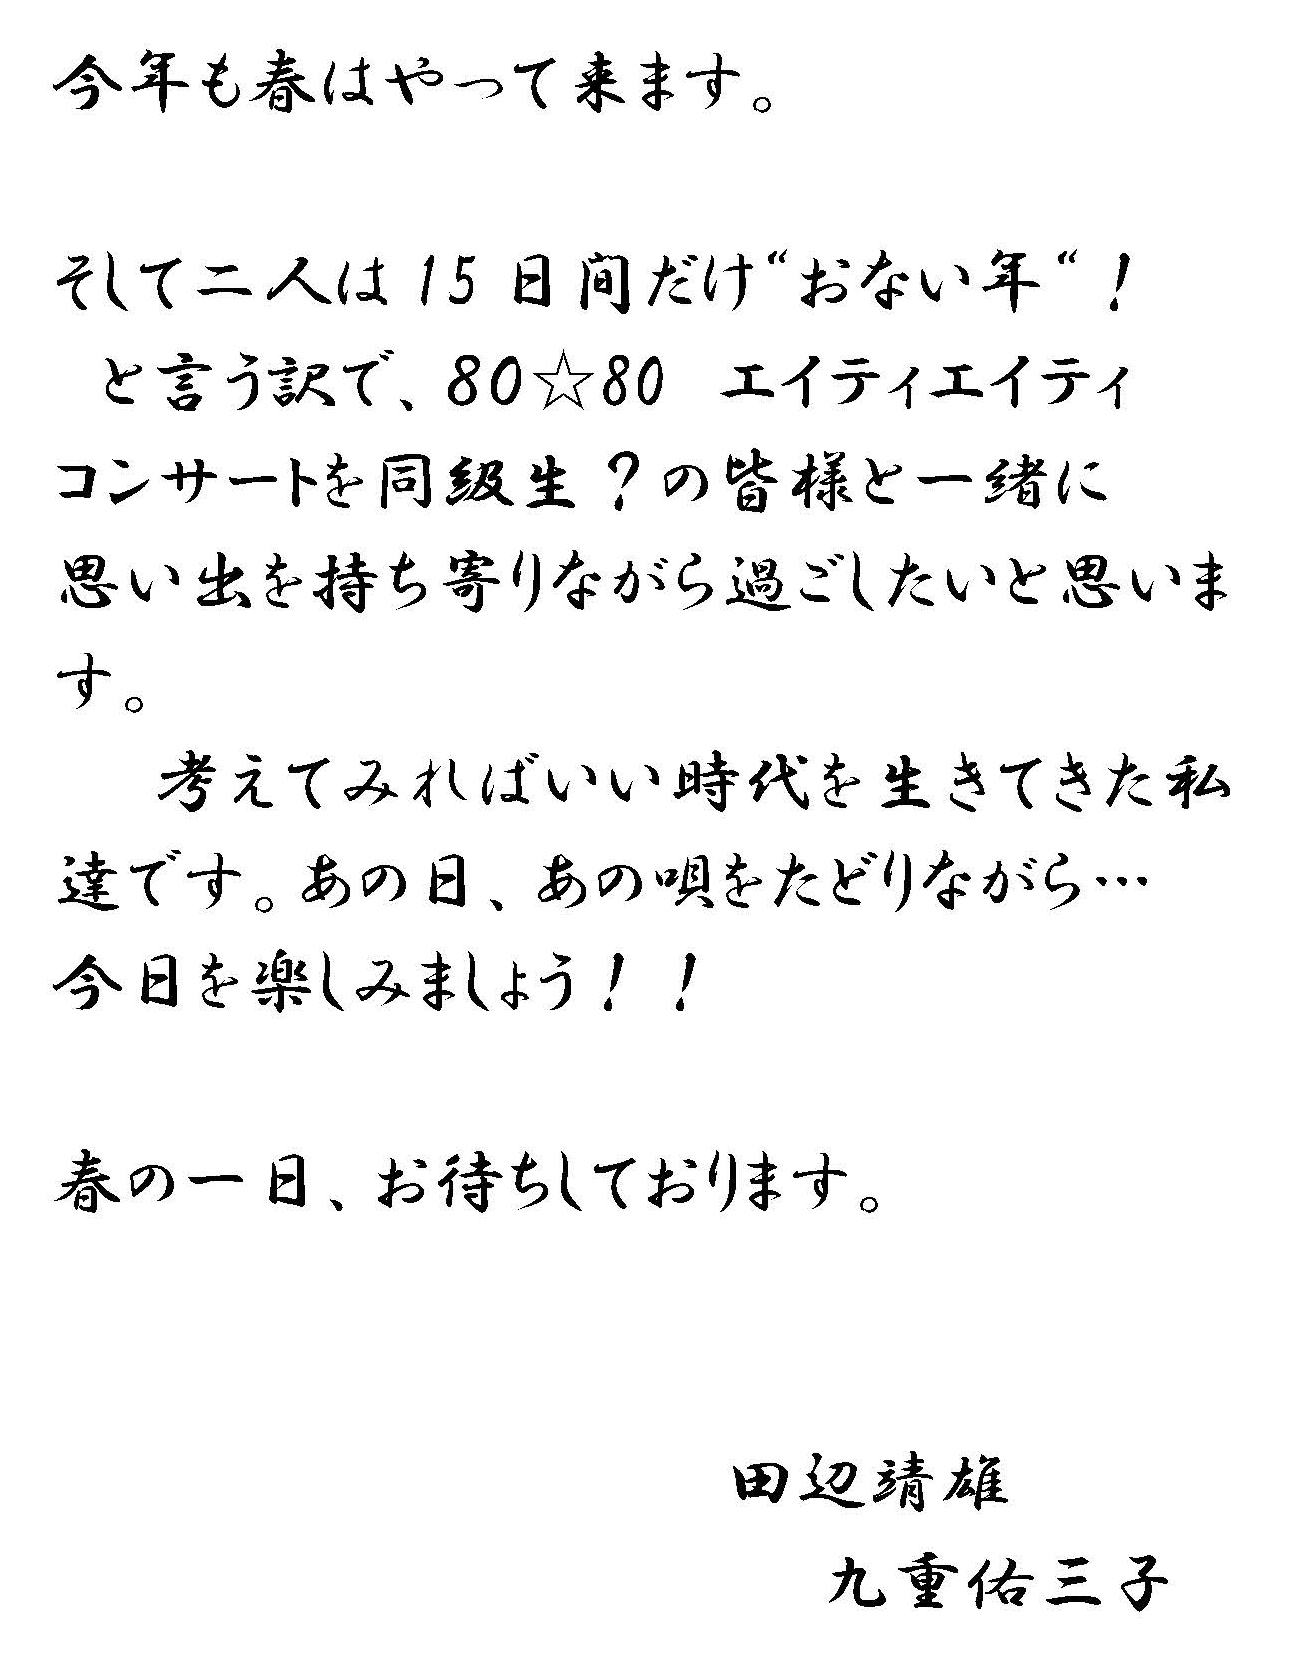 今年も春はやって来ます。
そして二人は 15 日間だけ“おない年“！
と言う訳で、80☆80　エイティエイティ
コンサートを同級生？の皆様と一緒に
思い出を持ち寄りながら過ごしたいと思いま
す。
考えてみればいい時代を生きてきた私
達です。あの日、あの唄をたどりながら…
今日を楽しみましょう！！
春の一日、お待ちしております。
田辺靖雄
九重佑三子